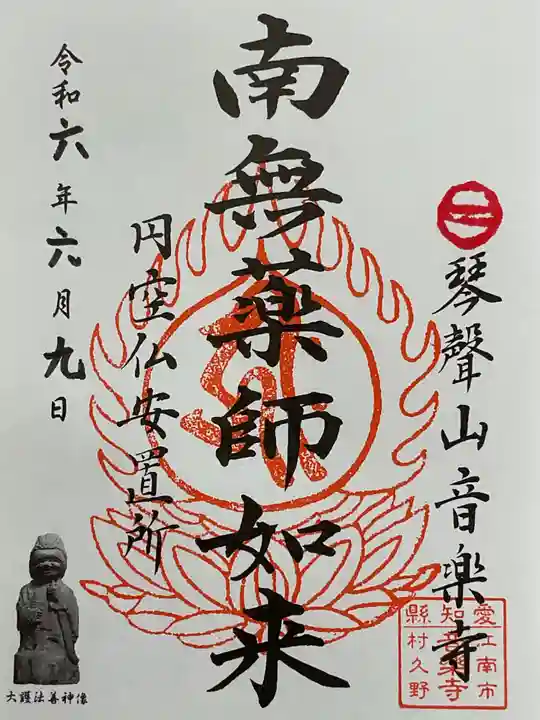 琴聲山音楽寺
愛江南市
知音楽寺
縣村久野
南無薬師如来
円空仏安置所
令和六年六月九日
大護法善神像